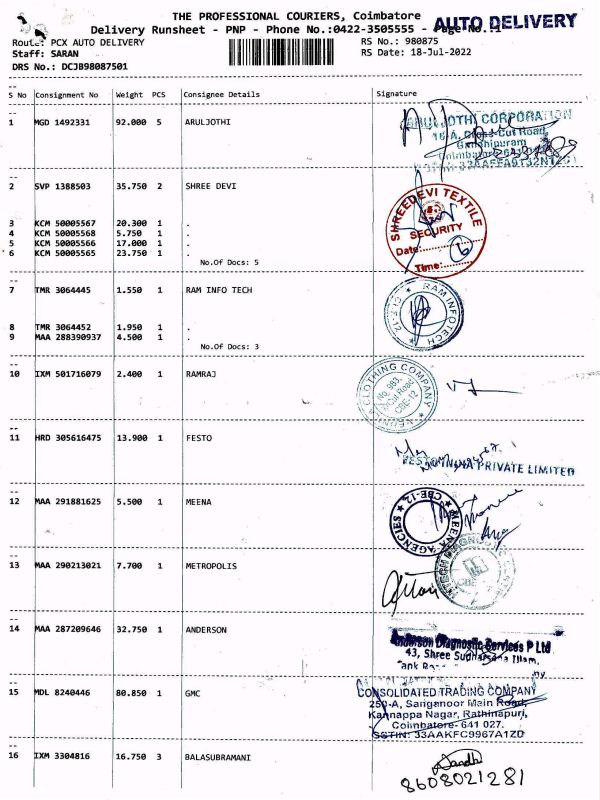 THE PROFESSIONAL COURIERS, Coimbatore
AUTO DELIVERY
Delivery Runsheet - PNP - Phone No.:0422-3505555 - Page No.:1
Route: PCX AUTO DELIVERY
RS No.: 980875
Staff: SARAN
RS Date: 18-Jul-2022
DRS No.: DCJB98087501
S No Consignment No Weight PCS Consignee Details Signature
1 MGD 1492331 92.000 5 ARULJOTHI
ARULJOTHI CORPORATION
16-A, Cross Cut Road
Gandhipuram
2 SVP 1388503 35.750 2 SHREE DEVI
SHREEDEVI TEXTILE
SECURITY
Date:
Time:
3 KCM 50005567 20.300 1 .
4 KCM 50005568 5.750 1 .
5 KCM 50005566 17.000 1 .
6 KCM 50005565 23.750 1 .
No.Of Docs: 5
7 TMR 3064445 1.550 1 RAM INFO TECH
RAM INFOTECH
CBE-12
8 TMR 3064452 1.950 1 .
9 MAA 288390937 4.500 1 .
No.Of Docs: 3
10 IXM 501716079 2.400 1 RAMRAJ
CLOTHING COMPANY
CBE-12
11 HRD 305616475 13.900 1 FESTO
FESTO INDIA PRIVATE LIMITED
12 MAA 291881625 5.500 1 MEENA
MEENA AGENCIES
CBE-12
13 MAA 290213021 7.700 1 METROPOLIS
14 MAA 287209646 32.750 1 ANDERSON
Anderson Diagnostic Services P Ltd
43, Shree Sudharsana Illam,
15 MDL 8240446 80.850 1 GMC
CONSOLIDATED TRADING COMPANY
250-A, Sanganoor Main Road,
Kannappa Nagar, Rathinapuri,
Coimbatore- 641 027.
GSTIN: 33AAKFC9967A1ZD
16 IXM 3304816 16.750 3 BALASUBRAMANI
8608021281